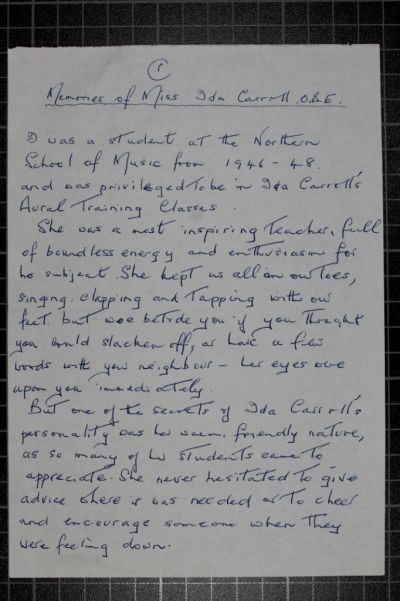 1
Memories of Miss Ida Carroll. O.B.E.
I was a student at the Northern
School of Music from 1946-48.
and was privileged to be in Ida Carroll's
Aural Training Classes.
She was a most inspiring teacher, full
of boundless energy and enthusiasm for
her subject. She kept us all on our toes,
singing, clapping and tapping with our
feet. but woe betide you if you thought
you could slacken off, or have a few
words with your neighbour - her eyes were
upon you immediately.
But one of the secrets of Ida Carroll's
personality was her warm, friendly nature,
as so many of her students came to
appreciate. She never hesitated to give
advice where it was needed or to cheer
and encourage someone when they
were feeling down.